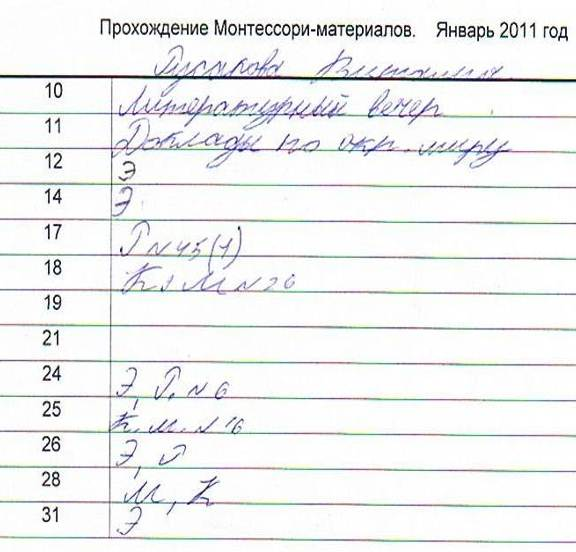 Прохождение Монтессори-материалов. Январь 2011 год
Гусакова
10 Литературный вечер
11 Доклады по окр. миру
12 Э
14 Э
17 Г №45(1)
18 К М №26
19
21
24 Э, Г. №6
25 К. М. №16
26 Э, Г
28 М, К
31 Э